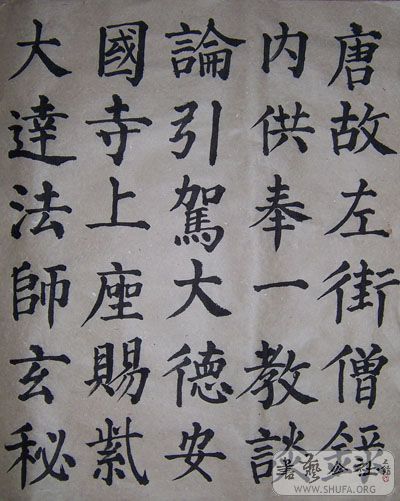 唐故左街僧録
内供奉一教談
論引駕大德安
國寺上座賜紫
大達法師玄秘
書藝公社
WWW.SHUFA.ORG